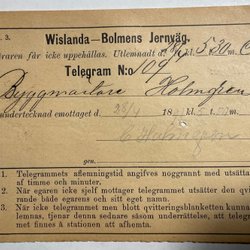 . 3.
Wislanda—Bolmens Jernväg.
raren får icke uppehållas. Utlemnadt d. kl. 5.30
Telegram N:o 109
Byggmästare Holmgren
undertecknad emottaget d. 23/1 18 kl.
E Holmgren
gen.
1. Telegrammets aflemningstid angifves noggrannt med utsätta
af timme och minuter.
2. När egaren icke sjelf mottager telegrammet utsätter den qvi-
rande både egarens och sitt eget namn.
3. När icke telegrammet men blott qvitteringsblanketten kunna
lemnas, tjenar dennas sednare såsom underrättelse, att telegram-
met finnes å stationen att afhemta.